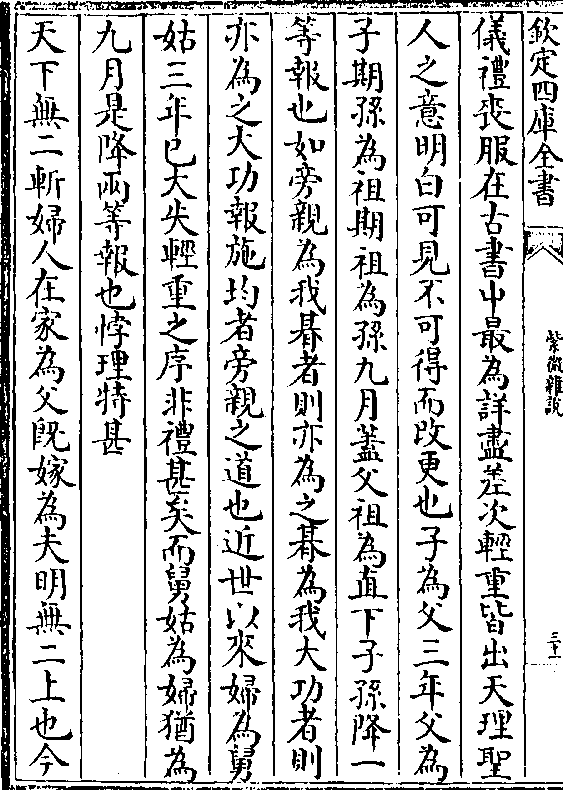 欽定四庫全書
紫微雜說
三十二
儀禮喪服在古書中最為詳盡差次輕重皆出天理聖
人之意明白可見不可得而改更也子為父三年父為
子期孫為祖期祖為孫九月蓋父祖為直下子孫降一
等報也如旁親為我朞者則亦為之朞為我大功者則
亦為之大功報施均者旁親之道也近世以來婦為舅
姑三年已大失輕重之序非禮甚矣而舅姑為婦猶為
九月是降兩等報也悖理特甚
天下無二斬婦人在家為父既嫁為夫明無二上也今